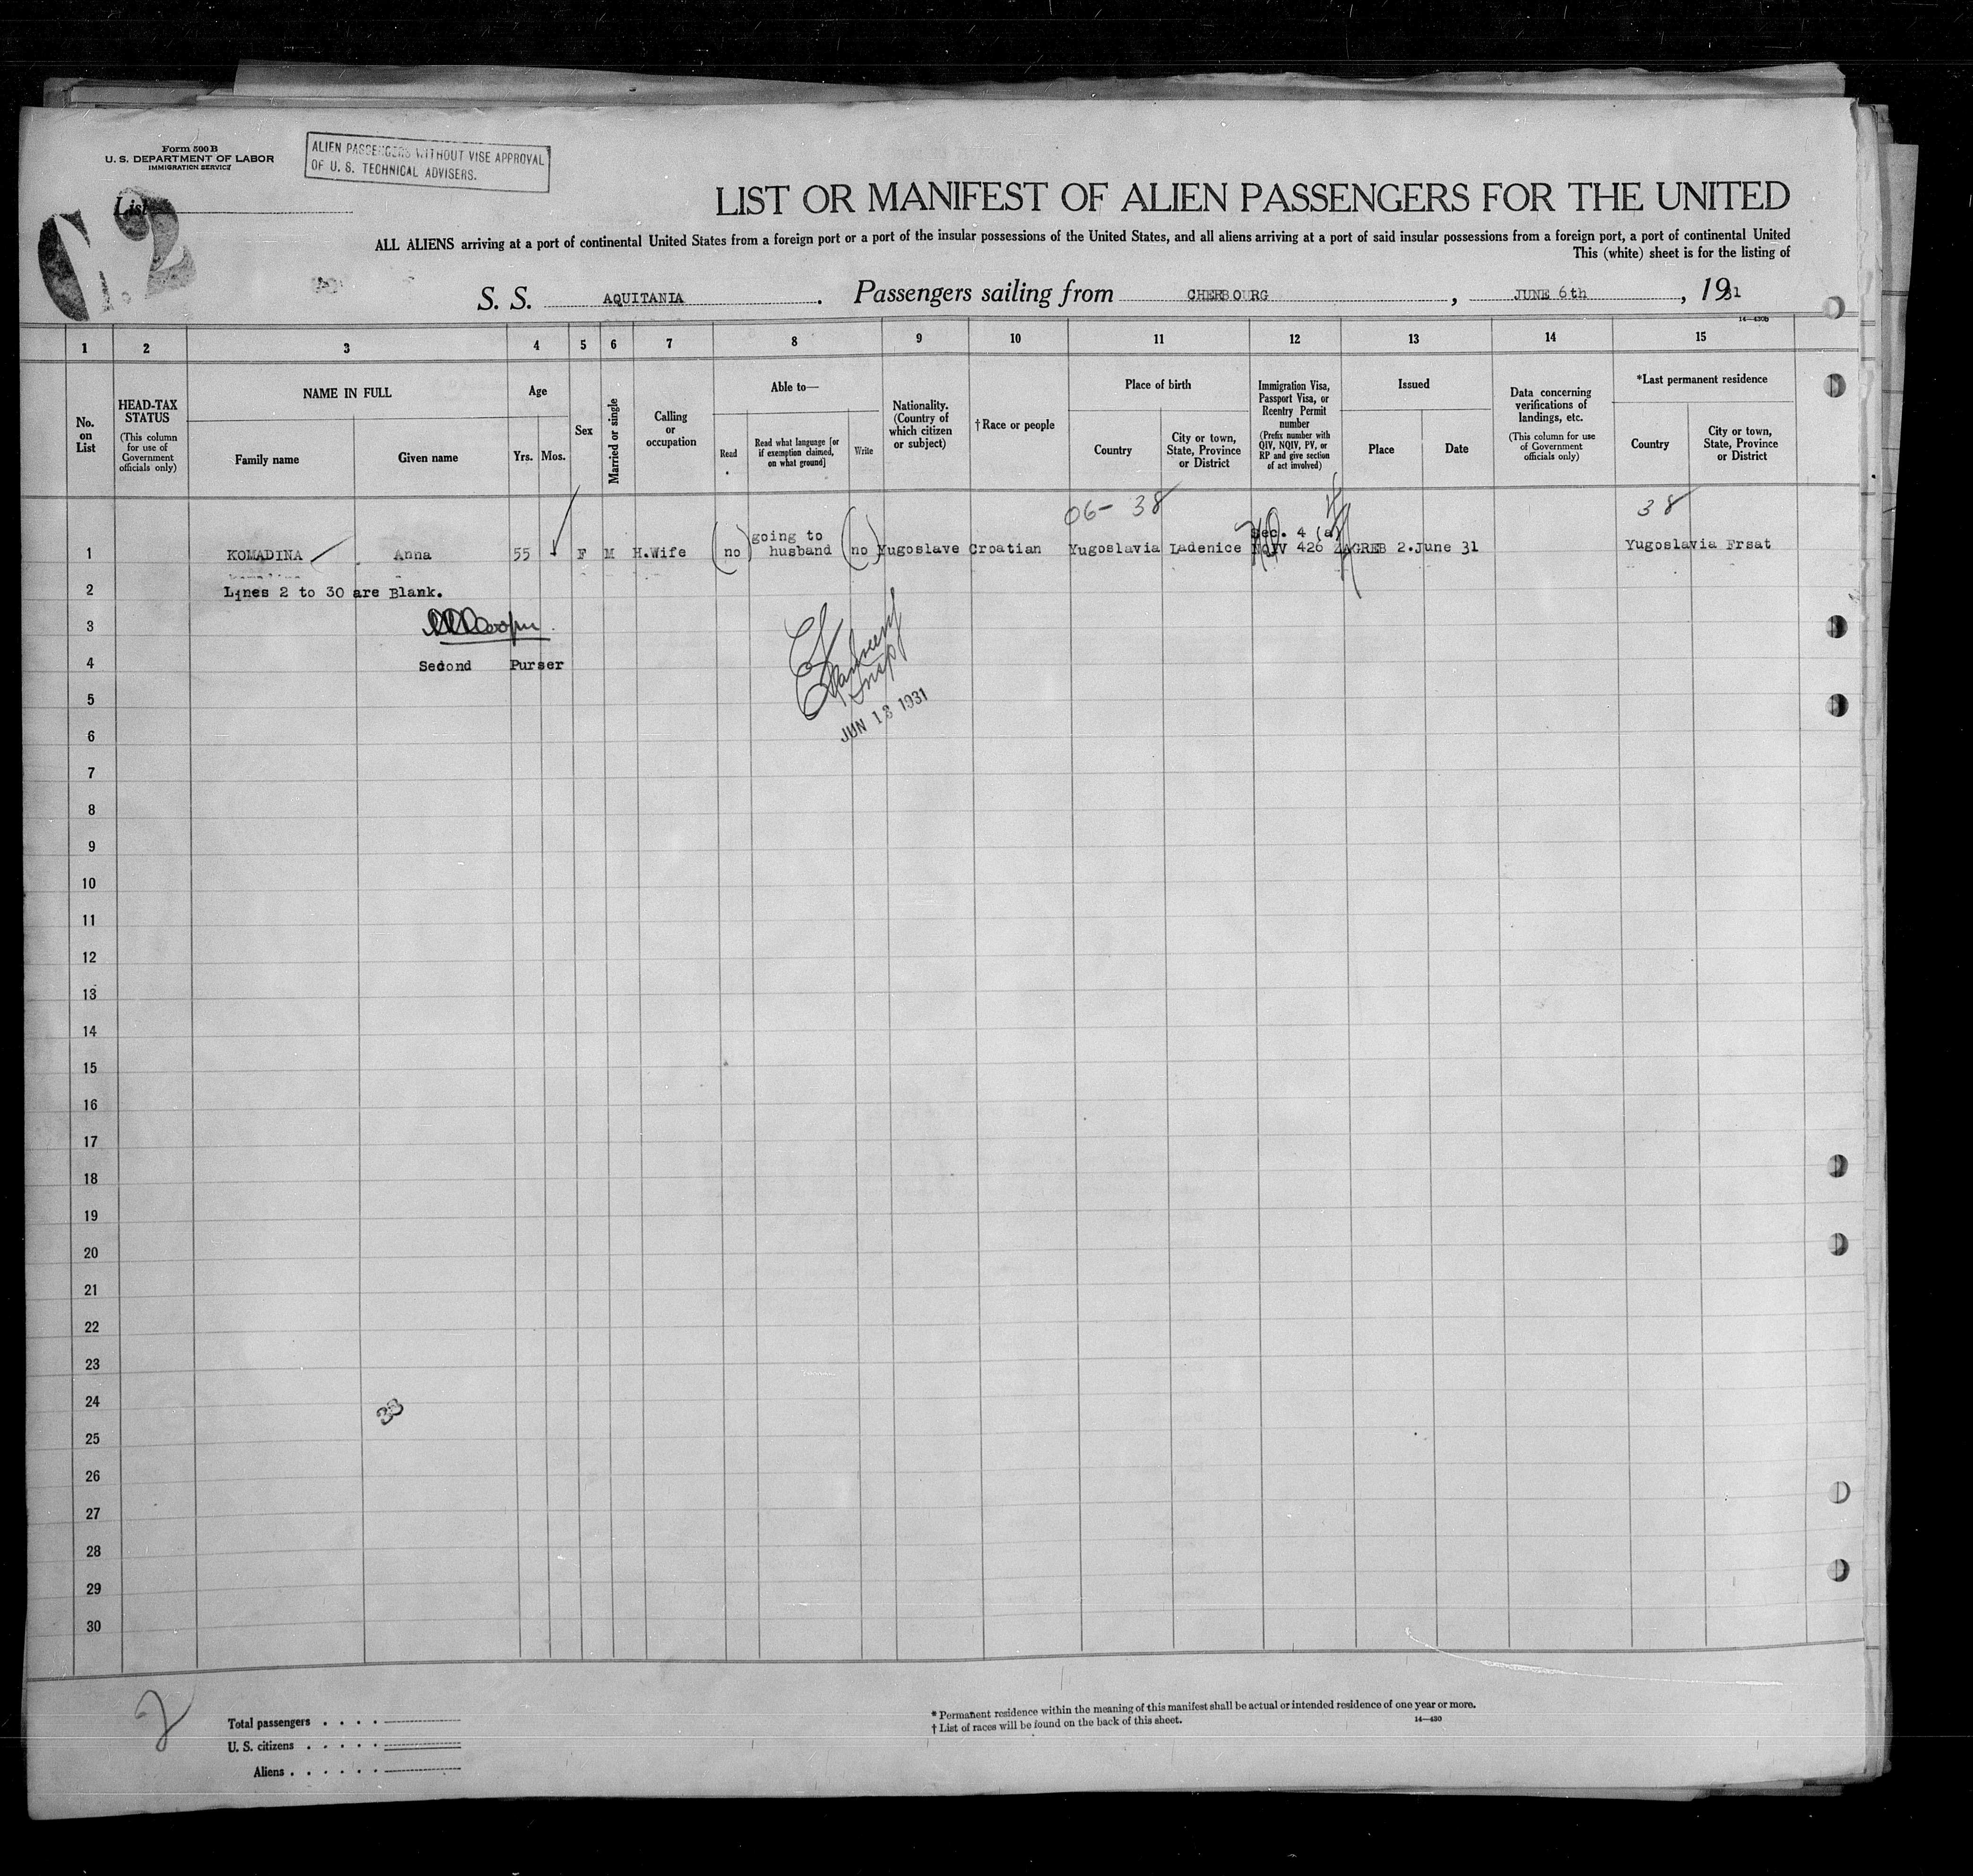 Form 500 B
U. S. DEPARTMENT OF LABOR
IMMIGRATION SERVICE
ALIEN PASSENGERS WITHOUT VISE APPROVAL
OF U. S. TECHNICAL ADVISERS.
List
2
LIST OR MANIFEST OF ALIEN PASSENGERS FOR THE UNITED
ALL ALIENS arriving at a port of continental United States from a foreign port or a port of the insular possessions of the United States, and all aliens arriving at a port of said insular possessions from a foreign port, a port of continental United
This (white) sheet is for the listing of
S. S. AQUITANIA. Passengers sailing from CHERBOURG, JUNE 6th, 1931
14—430B
1 2 3 4 5 6 7 8 9 10 11 12 13 14 15
No. on List
HEAD-TAX STATUS
(This column for use of Government officials only)
NAME IN FULL
Family name
Given name
Age
Yrs.
Mos.
Sex
Married or single
Calling or occupation
Able to—
Read
Read what language [or if exemption claimed, on what ground]
Write
Nationality. (Country of which citizen or subject)
†Race or people
Place of birth
Country
City or town, State, Province or District
Immigration Visa, Passport Visa, or Reentry Permit number
(Prefix number with QIV, NQIV, PV, or RP and give section of act involved)
Issued
Place
Date
Data concerning verifications of landings, etc.
(This column for use of Government officials only)
*Last permanent residence
Country
City or town, State, Province or District
06- 38
38
going to
Sec. 4 (a)
1 KOMADINA Anna 55 F M H.Wife (no) husband (no) Yugoslave Croatian Yugoslavia Ladenice NQIV 426 ZAGREB 2.June 31 Yugoslavia Frsat
2 Lines 2 to 30 are Blank.
3
4 Second Purser
Insp
JUN 13 1931
5
6
7
8
9
10
11
12
13
14
15
16
17
18
19
20
21
22
23
24
33
25
26
27
28
29
30
2
Total passengers . . . .
U. S. citizens . . . . .
Aliens . . . . . .
* Permanent residence within the meaning of this manifest shall be actual or intended residence of one year or more.
† List of races will be found on the back of this sheet.
14—430